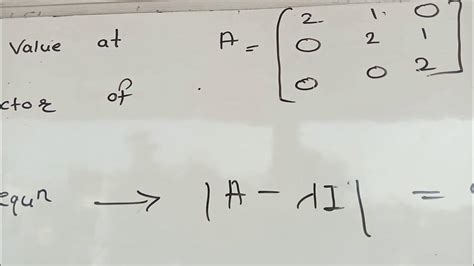 Value at A = [2 1 0
0 2 1
0 0 2]
ctor of
equn → |A - λI| =